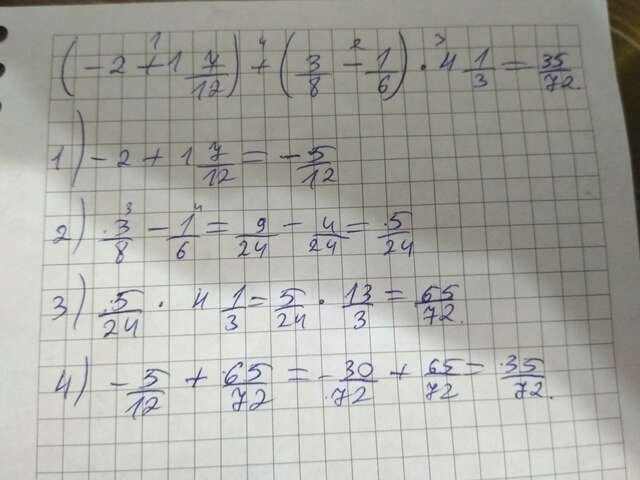 (-2 + 1 7/12) + (3/8 - 1/6) · 4 1/3 = 35/72
1) -2 + 1 7/12 = -5/12
2) 3/8 - 1/6 = 9/24 - 4/24 = 5/24
3) 5/24 · 4 1/3 = 5/24 · 13/3 = 65/72
4) -5/12 + 65/72 = -30/72 + 65/72 = 35/72